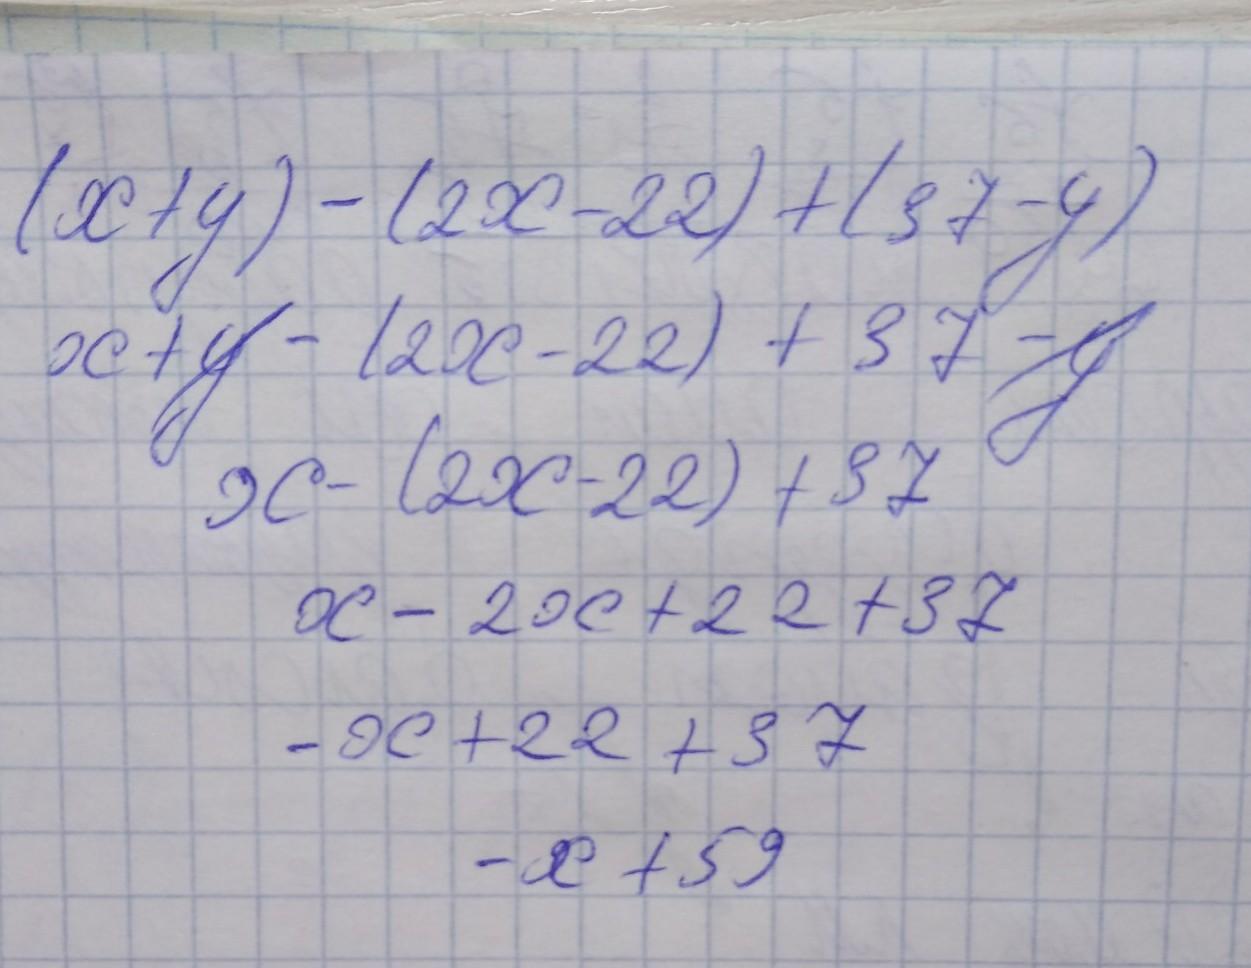 (x+y)-(2x-22)+(37-y)
x+y-(2x-22)+37-y
x-(2x-22)+37
x-2x+22+37
-x+22+37
-x+59